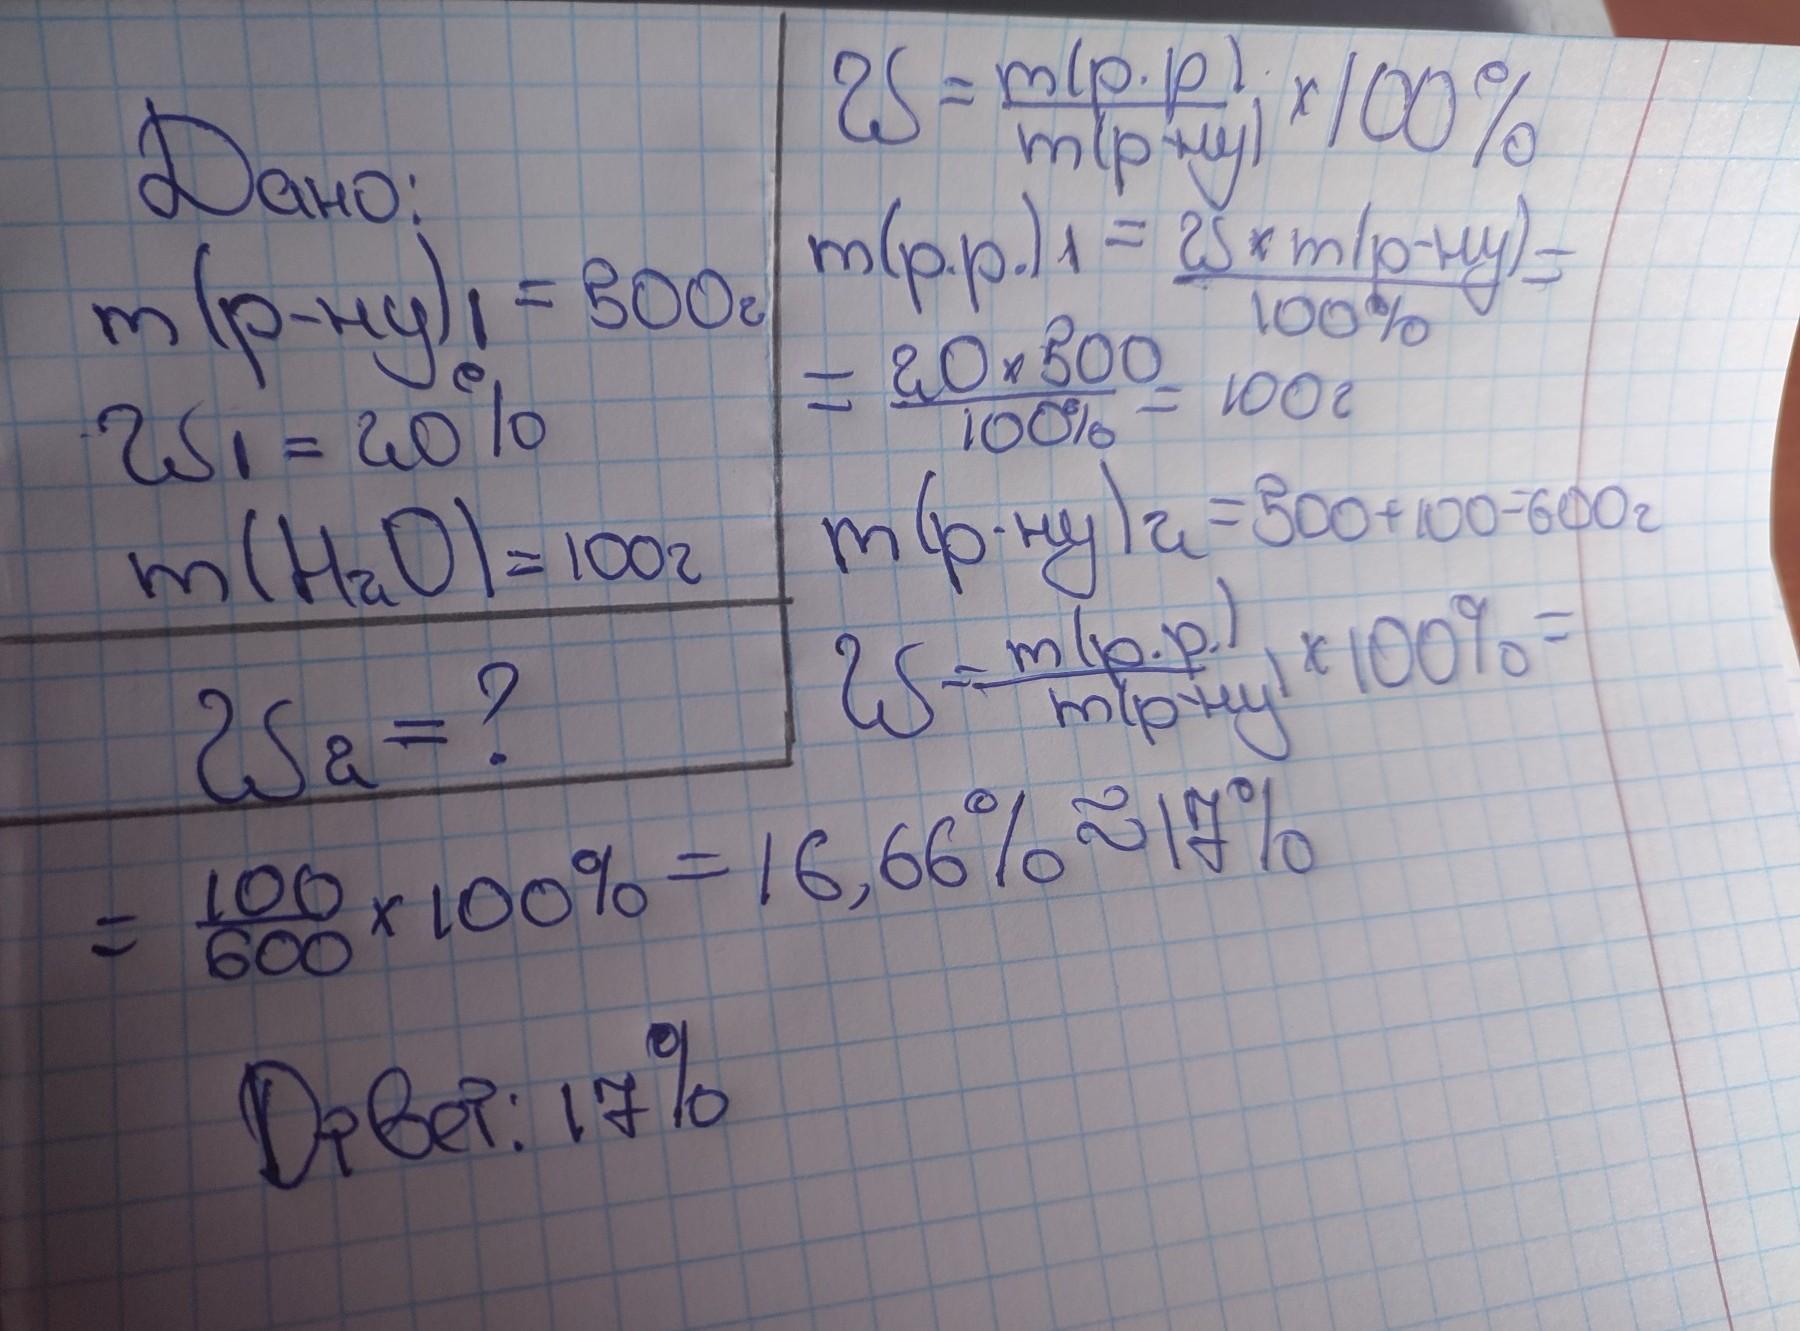 Дано:
m(р-ну)1 = 500г
W1 = 20%
m(H2O) = 100г
W2 = ?
W = m(р.р.)/m(р-ну) × 100%
m(р.р.)1 = W × m(р-ну)/100% =
= 20 × 500/100% = 100г
m(р-ну)2 = 500 + 100 = 600г
W = m(р.р.)/m(р-ну) × 100% =
= 100/600 × 100% = 16,66% ≈ 17%
Ответ: 17%